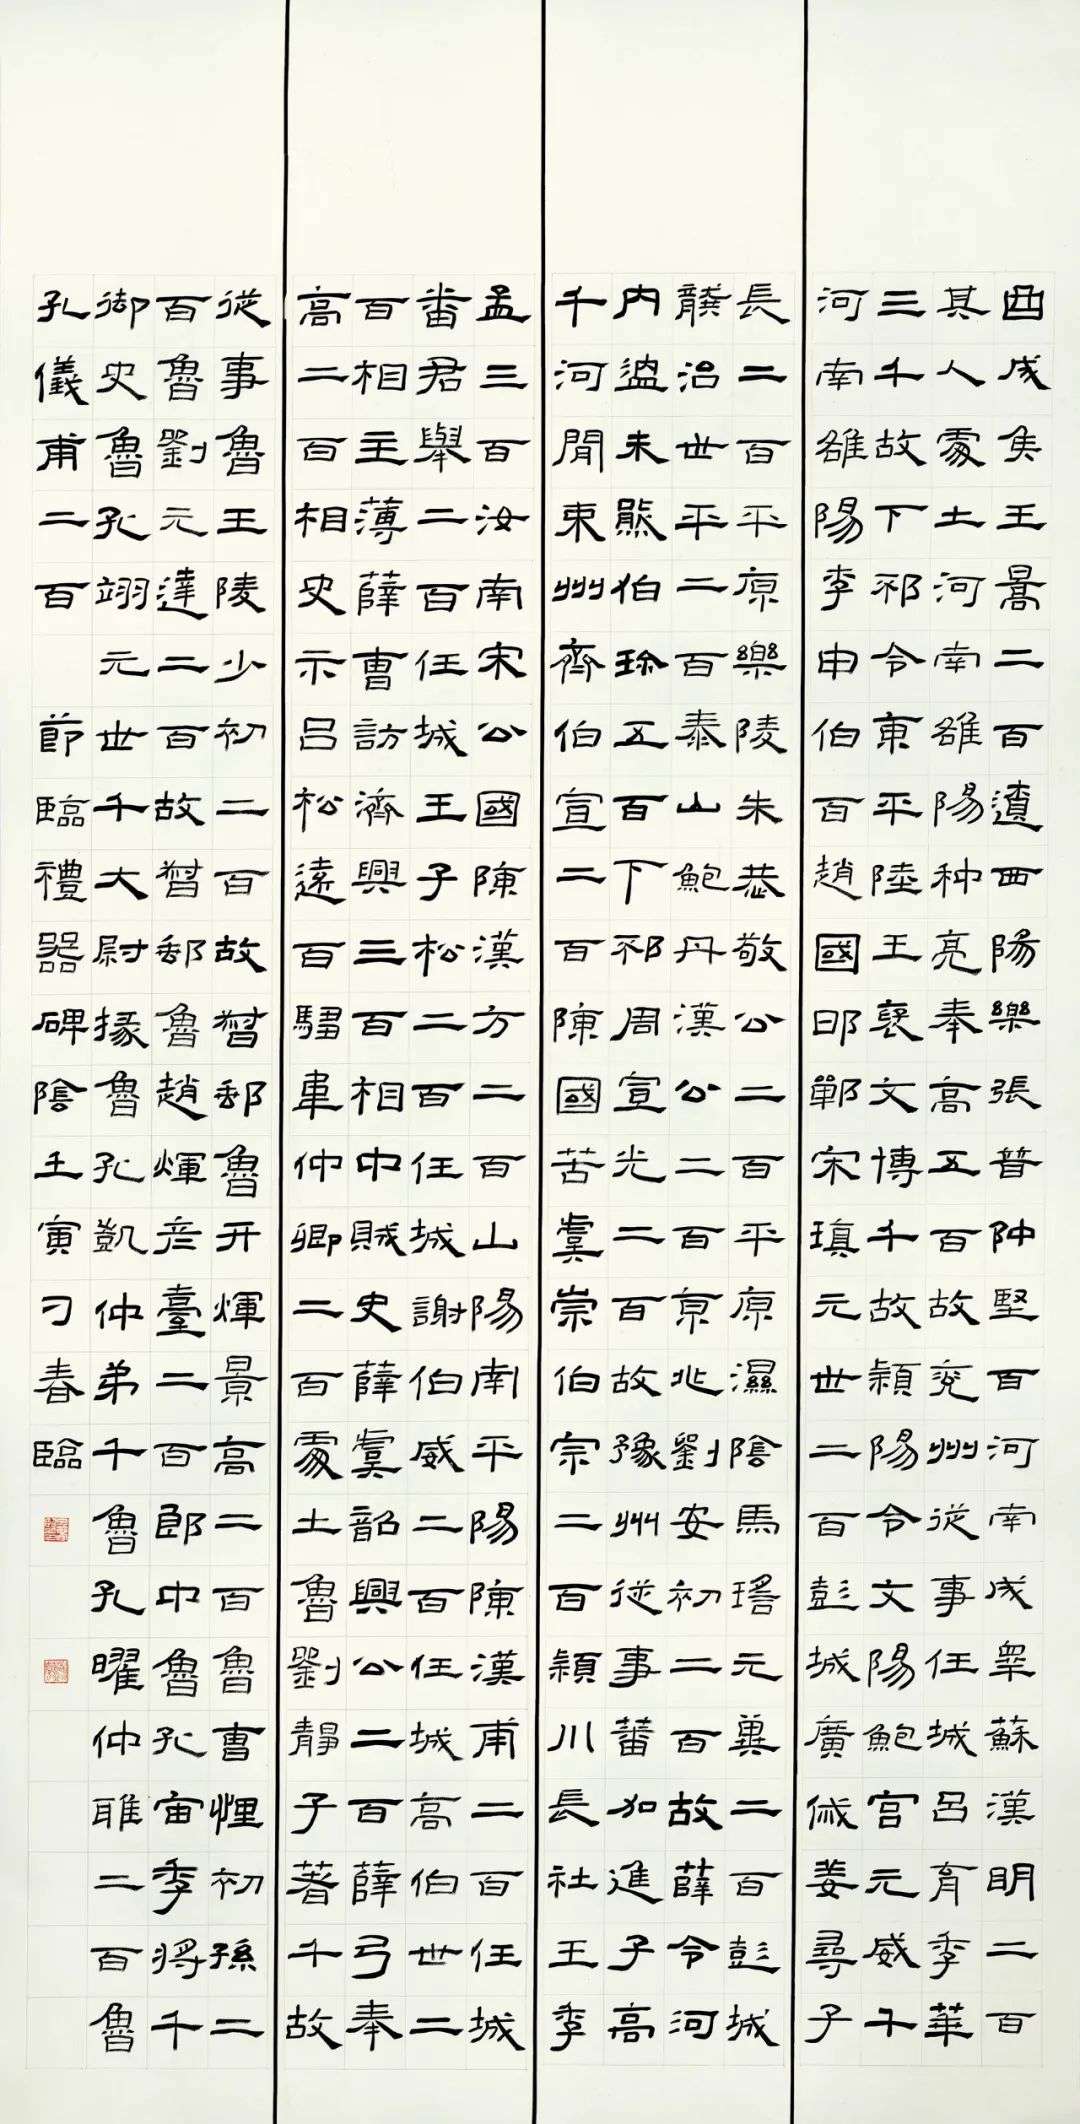 酉成矦王暠二百遺西陽樂張普仲堅百河南成睪蘇漢明二百
其人處士河南雒陽种亮奉高五百故兖州從事任城呂育季華
三千故下邳令東平陸王褒文博千故潁陽令文陽鮑宮元威千
河南雒陽李申伯百趙國邯鄲宋瑱元世二百彭城廣戚姜尋子
長二百平原樂陵朱恭敬公二百平原濕陰馬瑤元冀二百彭城
龔治世平二百泰山鮑丹漢公二百京兆劉安初二百故薛令河
內溫朱熊伯珍五百下邳周宣光二百故豫州從事蕃加進子高
千河閒束州齊伯宣二百陳國苦虞崇伯宗二百潁川長社王季
孟三百汝南宋公國陳漢方二百山陽南平陽陳漢甫二百任城
番君舉二百任城王子松二百任城謝伯威二百任城高伯世二
百相主薄薛曹訪濟興三百相中賊史薛虞韶興公二百薛弓奉
高二百相史卞呂松遠百騶韋仲卿二百處士魯劉靜子著千故
從事魯王陵少初二百故督郵魯开煇景高二百魯曹悝初孫二
百魯劉元達二百故督郵魯趙煇彦臺二百郎中魯孔宙季將千
御史魯孔翊元世千大尉掾魯孔凱仲弟千魯孔曜仲雅二百魯
孔儀甫二百 節臨禮器碑陰壬寅刁春臨